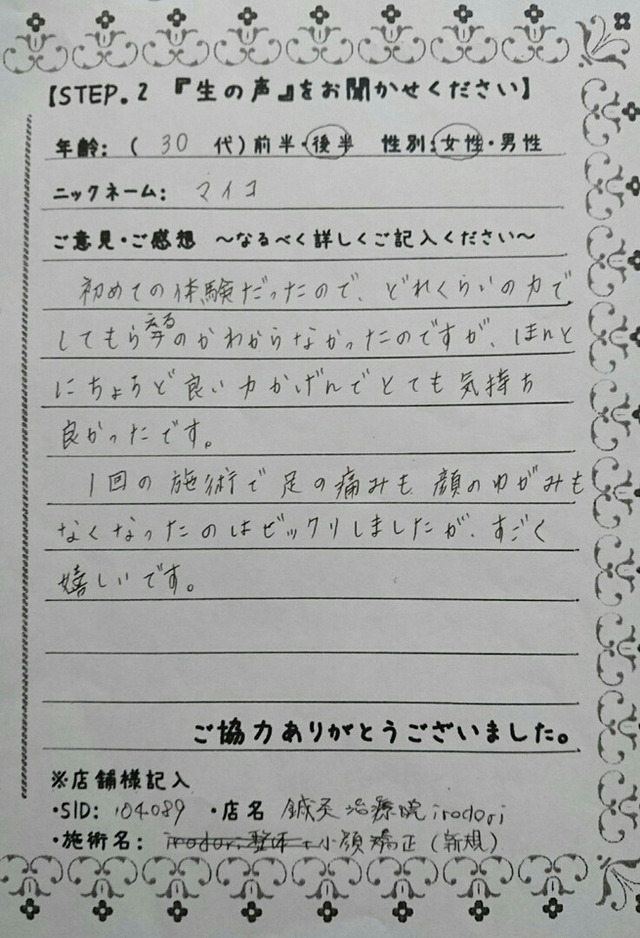 【STEP.2 『生の声』をお聞かせください】
年齢：( 30 代)前半・後半 性別：女性・男性
ニックネーム： マイコ
ご意見・ご感想 ～なるべく詳しくご記入ください～
初めての体験だったので、どれくらいの力で
してもらえるのかわからなかったのですが、ほんと
にちょうど良い力かげんでとても気持ち
良かったです。
1回の施術で足の痛みも顔のゆがみも
なくなったのはビックリしましたが、すごく
嬉しいです。
ご協力ありがとうございました。
※店舗様記入
・SID: 104089 ・店名 鍼灸治療院irodori
・施術名： irodori整体+小顔矯正(新規)